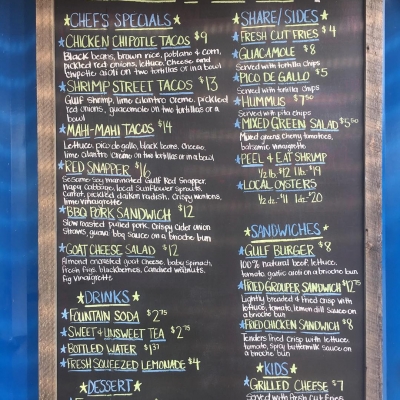 CHEF'S SPECIALS
CHICKEN CHIPOTLE TACOS $9
Black beans, brown rice, poblano & corn,
pickled red onions, lettuce, cheese and
chipotle aioli on tortillas or in a bowl
SHRIMP STREET TACOS $13
Gulf shrimp, lime cilantro creme, pickled
red onions, guacamole on tortillas or in a
bowl
MAHI-MAHI TACOS $14
Lettuce, pico de gallo, black beans, cheese,
lime cilantro creme on two tortillas or in a bowl
RED SNAPPER $16
Sesame-soy marinated Gulf Red Snapper,
napa cabbage, local sunflower sprouts,
carrot, pickled daikon radish, crispy wontons,
lime vinaigrette
BBQ PORK SANDWICH $12
Slow roasted pulled pork, crispy cider onion
straws, guava bbq sauce on a brioche bun
GOAT CHEESE SALAD $12
Almond crusted goat cheese, baby spinach,
fresh figs, blackberries, candied walnuts,
fig vinaigrette
DRINKS
FOUNTAIN SODA $2.75
SWEET & UNSWEET TEA $2.75
BOTTLED WATER $1.37
FRESH SQUEEZED LEMONADE $4
DESSERT
SHARE/SIDES
FRESH CUT FRIES $4
GUACAMOLE $8
Served with tortilla chips
PICO DE GALLO $5
Served with tortilla chips
HUMMUS $7.50
Served with pita chips
MIXED GREEN SALAD $5.50
Mixed greens, cherry tomatoes,
balsamic vinaigrette
PEEL & EAT SHRIMP
1/2 lb. $12 1 lb. $19
LOCAL OYSTERS
1/2 dz. $11 1 dz. $20
SANDWICHES
GULF BURGER $8
100% natural beef, lettuce,
tomato, garlic aioli on a brioche bun
FRIED GROUPER SANDWICH $12.75
Lightly breaded & fried crisp with
lettuce, tomato, lemon dill sauce on
a brioche bun
FRIED CHICKEN SANDWICH $8
Tenders fried crisp with lettuce,
tomato, spicy buttermilk sauce on
a brioche bun
KIDS
GRILLED CHEESE $7
Served with Fresh Fries